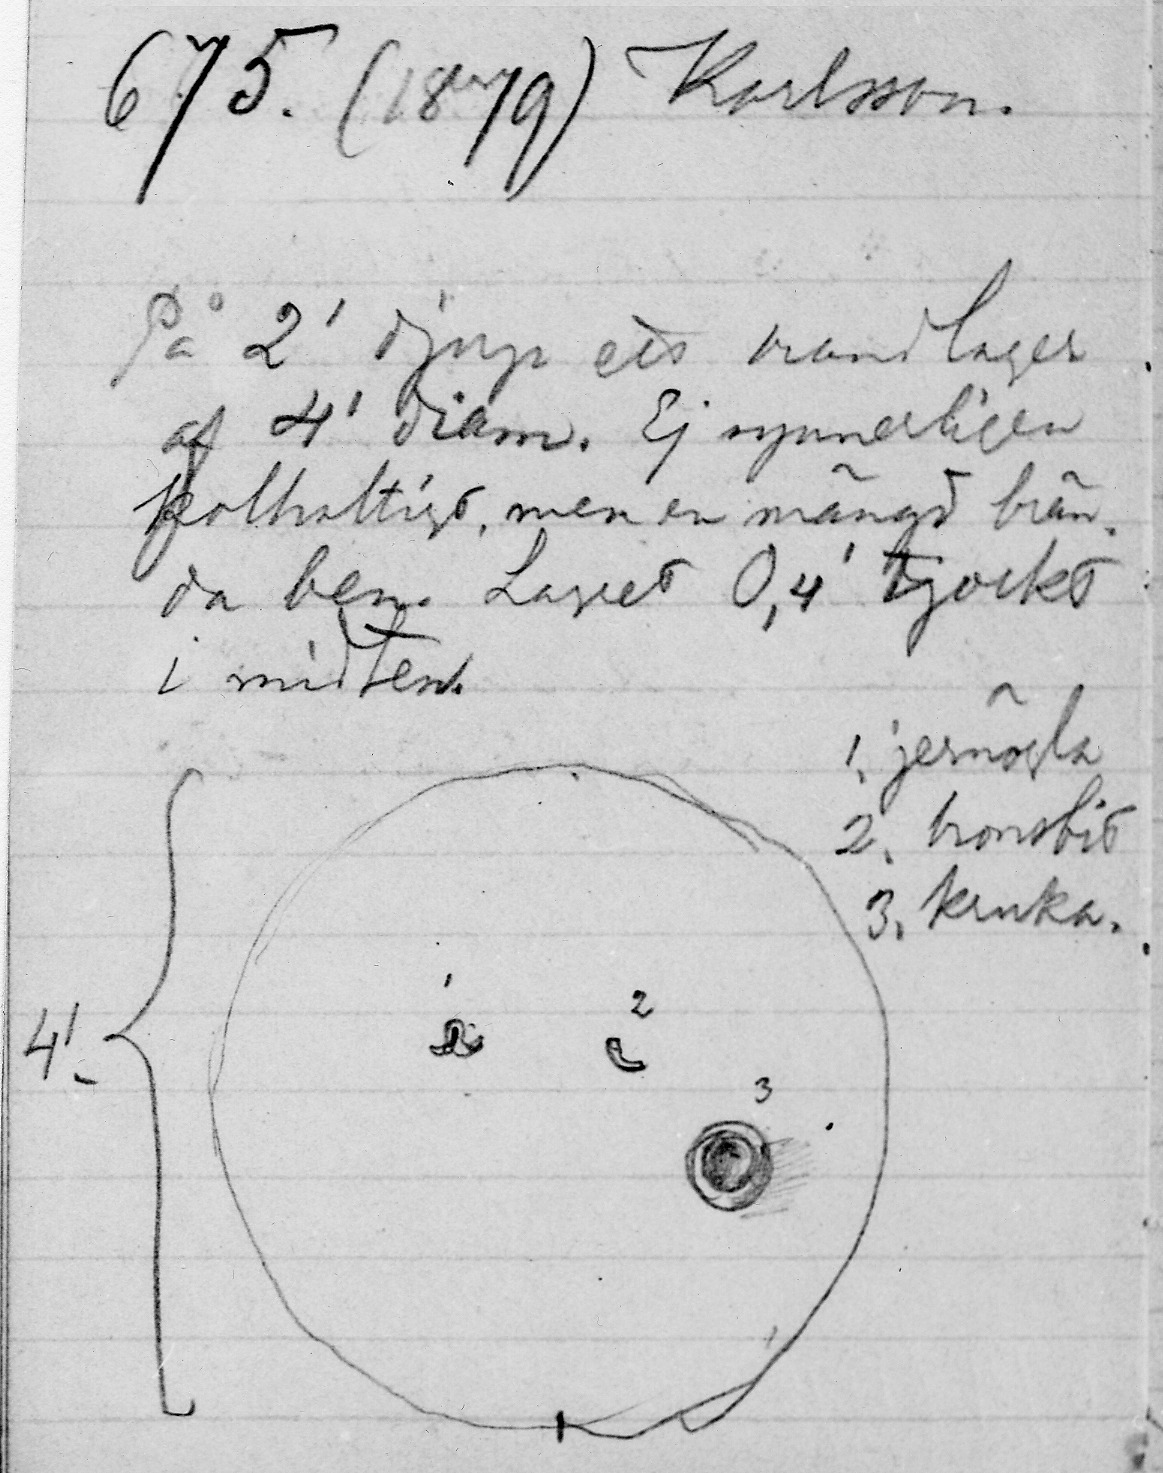 675. (1879) Karlsson.
På 2' djup ett brandlager
af 4' diam. Ej synnerligen
kolhaltigt, men en mängd brän-
da ben. Lagret 0,4' tjockt
i midten.
1. jernögla
2. bronsbit
3. kruka.
1
2
4'
3